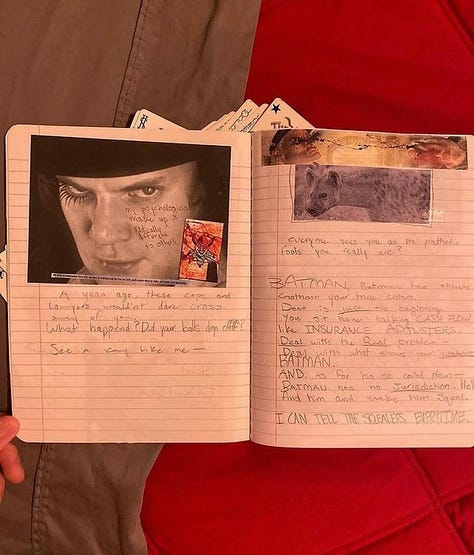 my psychological
make up is
radically
different
to others
A year ago, these cops and
Lawyers wouldn't dare cross
anway of you,
What happend? Did your balls drop off??
See a guy like me —
everyone sees you as the pathetic
fools you really are?
BATMAN. Batman has shown
Gotham your true colors.
Dent is just the beginning
You sit here talking CASH FLOW
like INSURANCE ADJUSTERS.
Deal with the Real problem —
Deal with what shows your
BATMAN.
AND. as for his so called plan —
BATMAN has no Jurisdiction. He
find him and make him Sqeal.
I CAN TELL THE SQEALERS EVERYTIME.